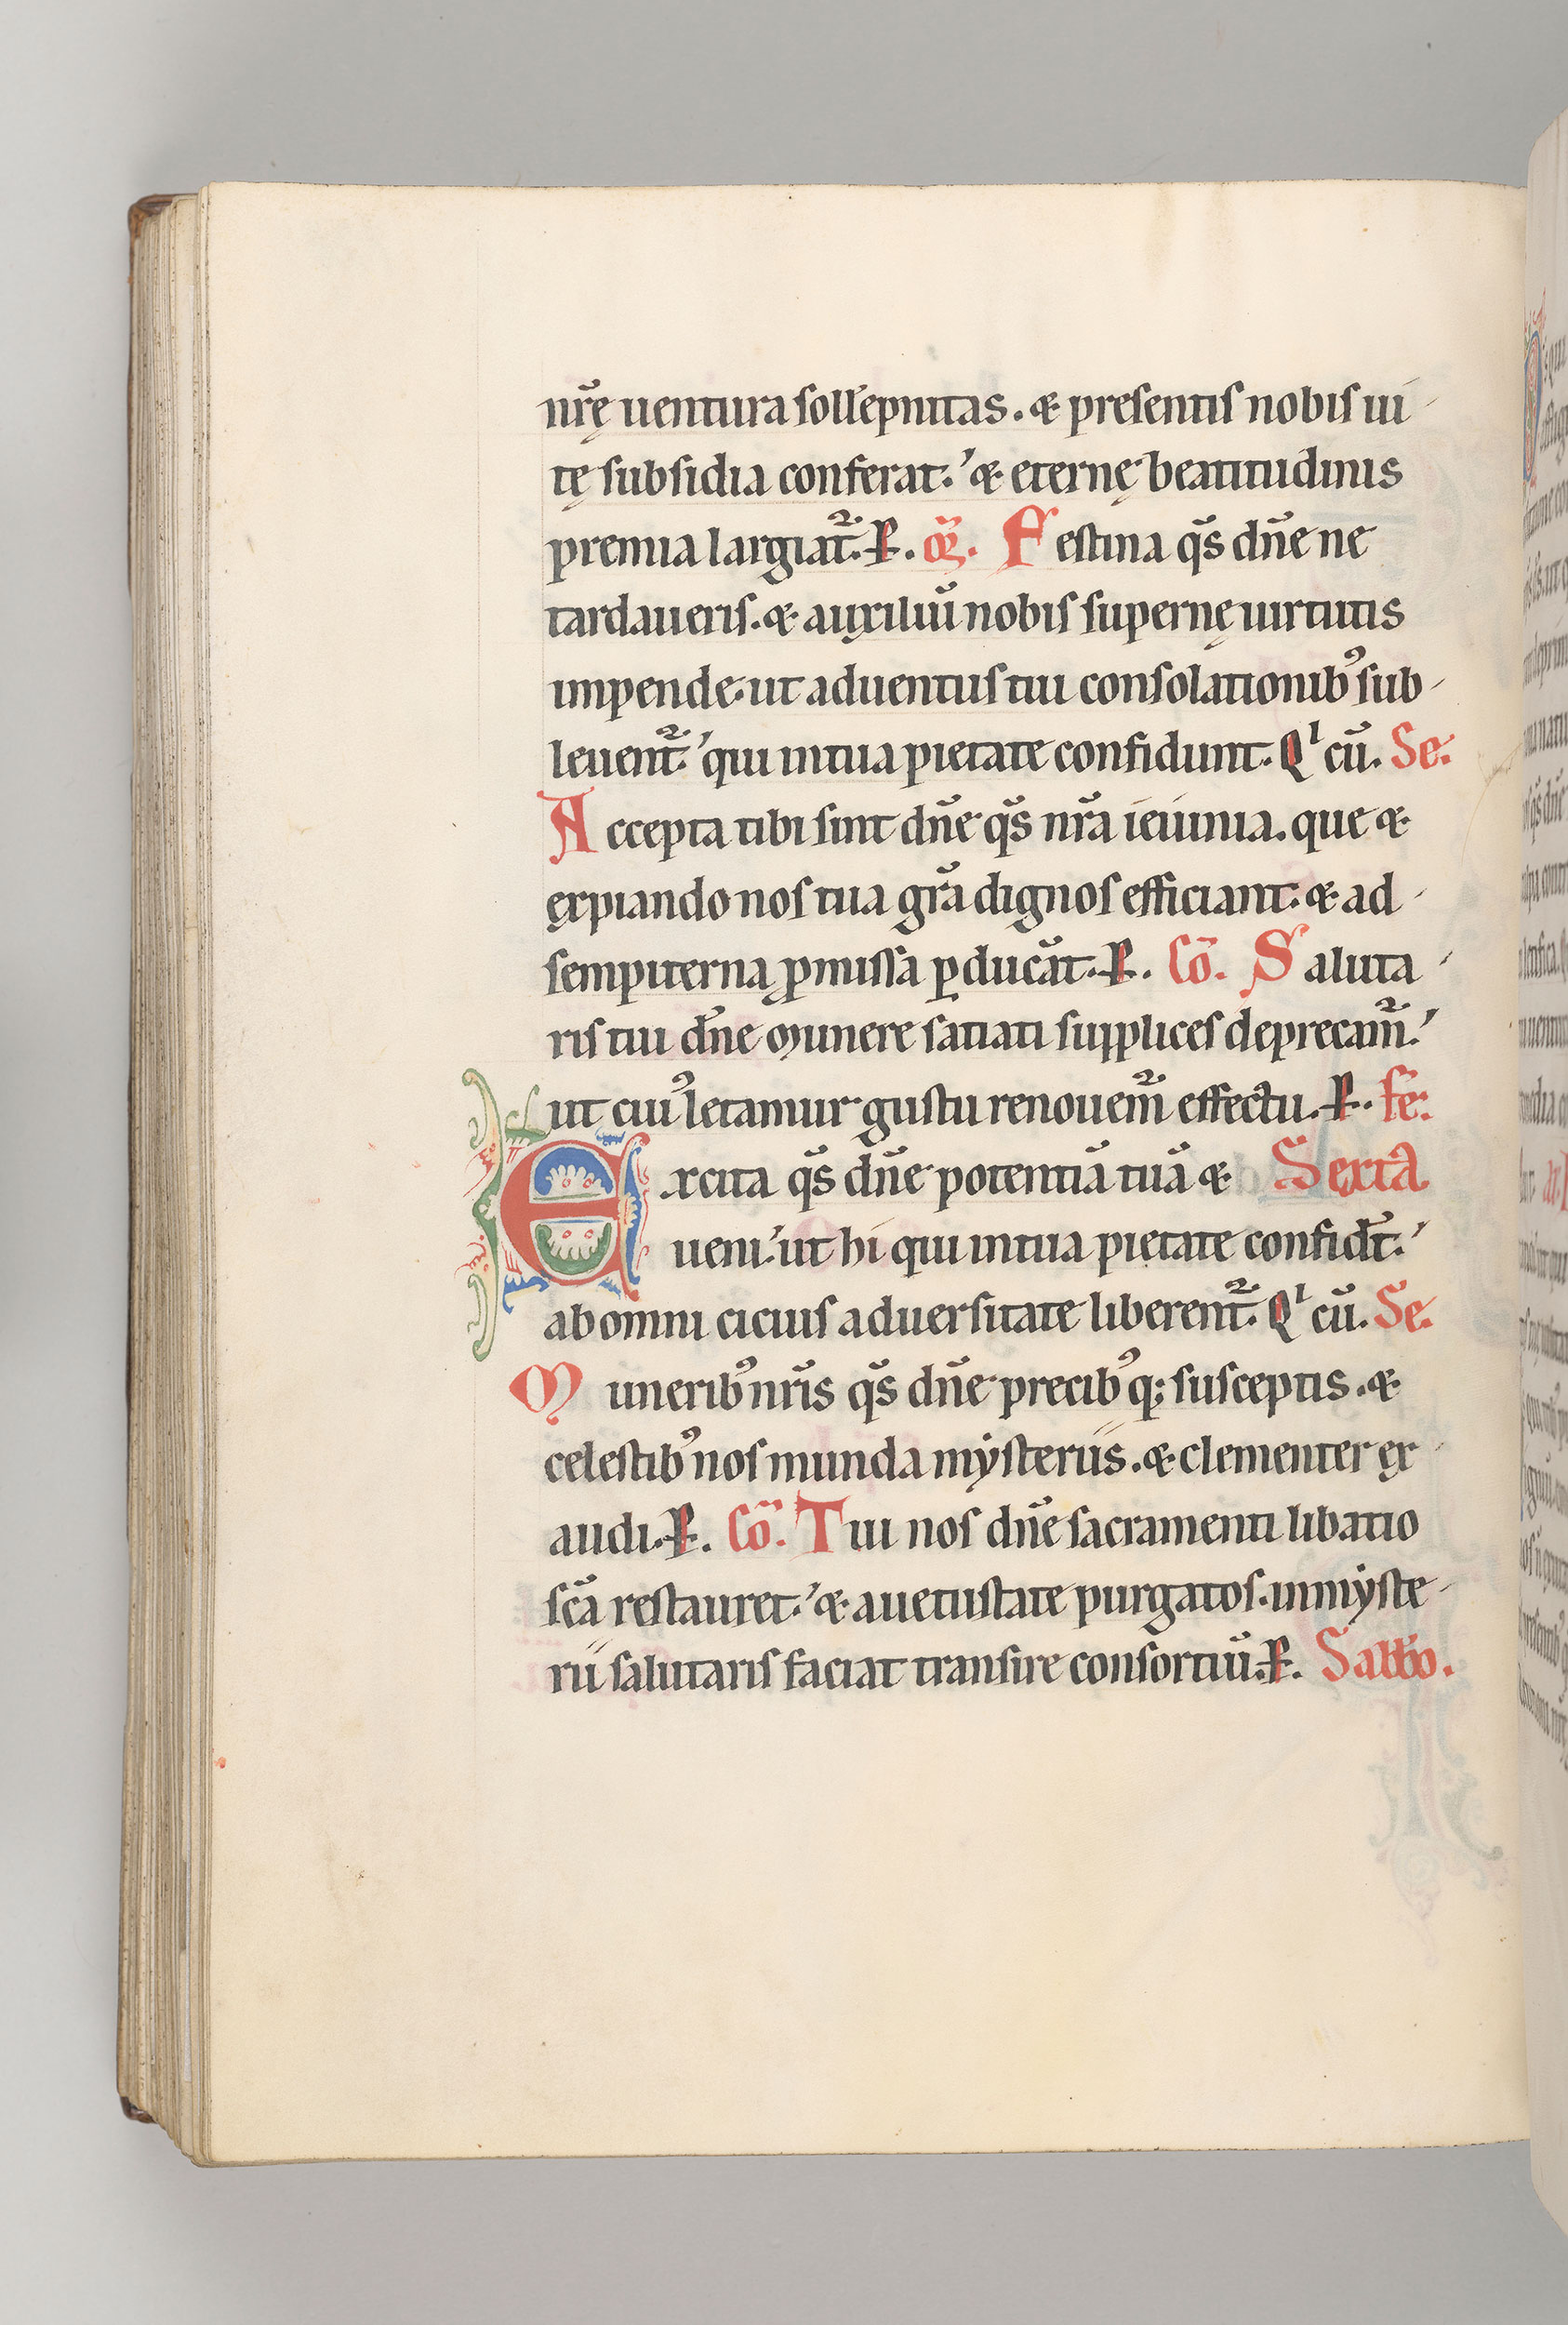 nr̃ę uentura sollẽpnitas. & presentis nobis ui-
tę subsidia conferat. & eternę beatitudinis
premia largiat᷑. P. or̃. Festina q̃s dñe ne
tardaueris. & auxiliũ nobis supernę uirtutis
impende. ut aduentus tui consolationib⁹ sub-
leuent᷑. qui in tua pietate confidunt. Qⁱ cũ. Se.
Accepta tibi sint dñe q̃s nr̃a ieiunia. que &
expiando nos tua gr̃a dignos efficiant. & ad-
sempiterna ꝓmissa ꝑducãt. P. Cõ. Saluta-
ris tui dñe munere satiati supplices deprecam᷑.
ut cui⁹ letamur gustu renouem᷑ effectu. P. Fe.
Excita q̃s dñe potentiã tuã & Sexta
ueni. ut hi qui in tua pietate confidt̃.
ab omni cicius aduersitate liberent᷑. Qⁱ cũ. Se.
Munerib⁹ nr̃is q̃s dñe precib⁹q; susceptis. &
celestib⁹ nos munda mẏsteriis. & clementer ex-
audi. P. Cõ. Tui nos dñe sacramenti libatio
sc̃a restauret. & a uetustate purgatos. in mẏste-
rii salutaris faciat transire consortiũ. P. Sabbo.